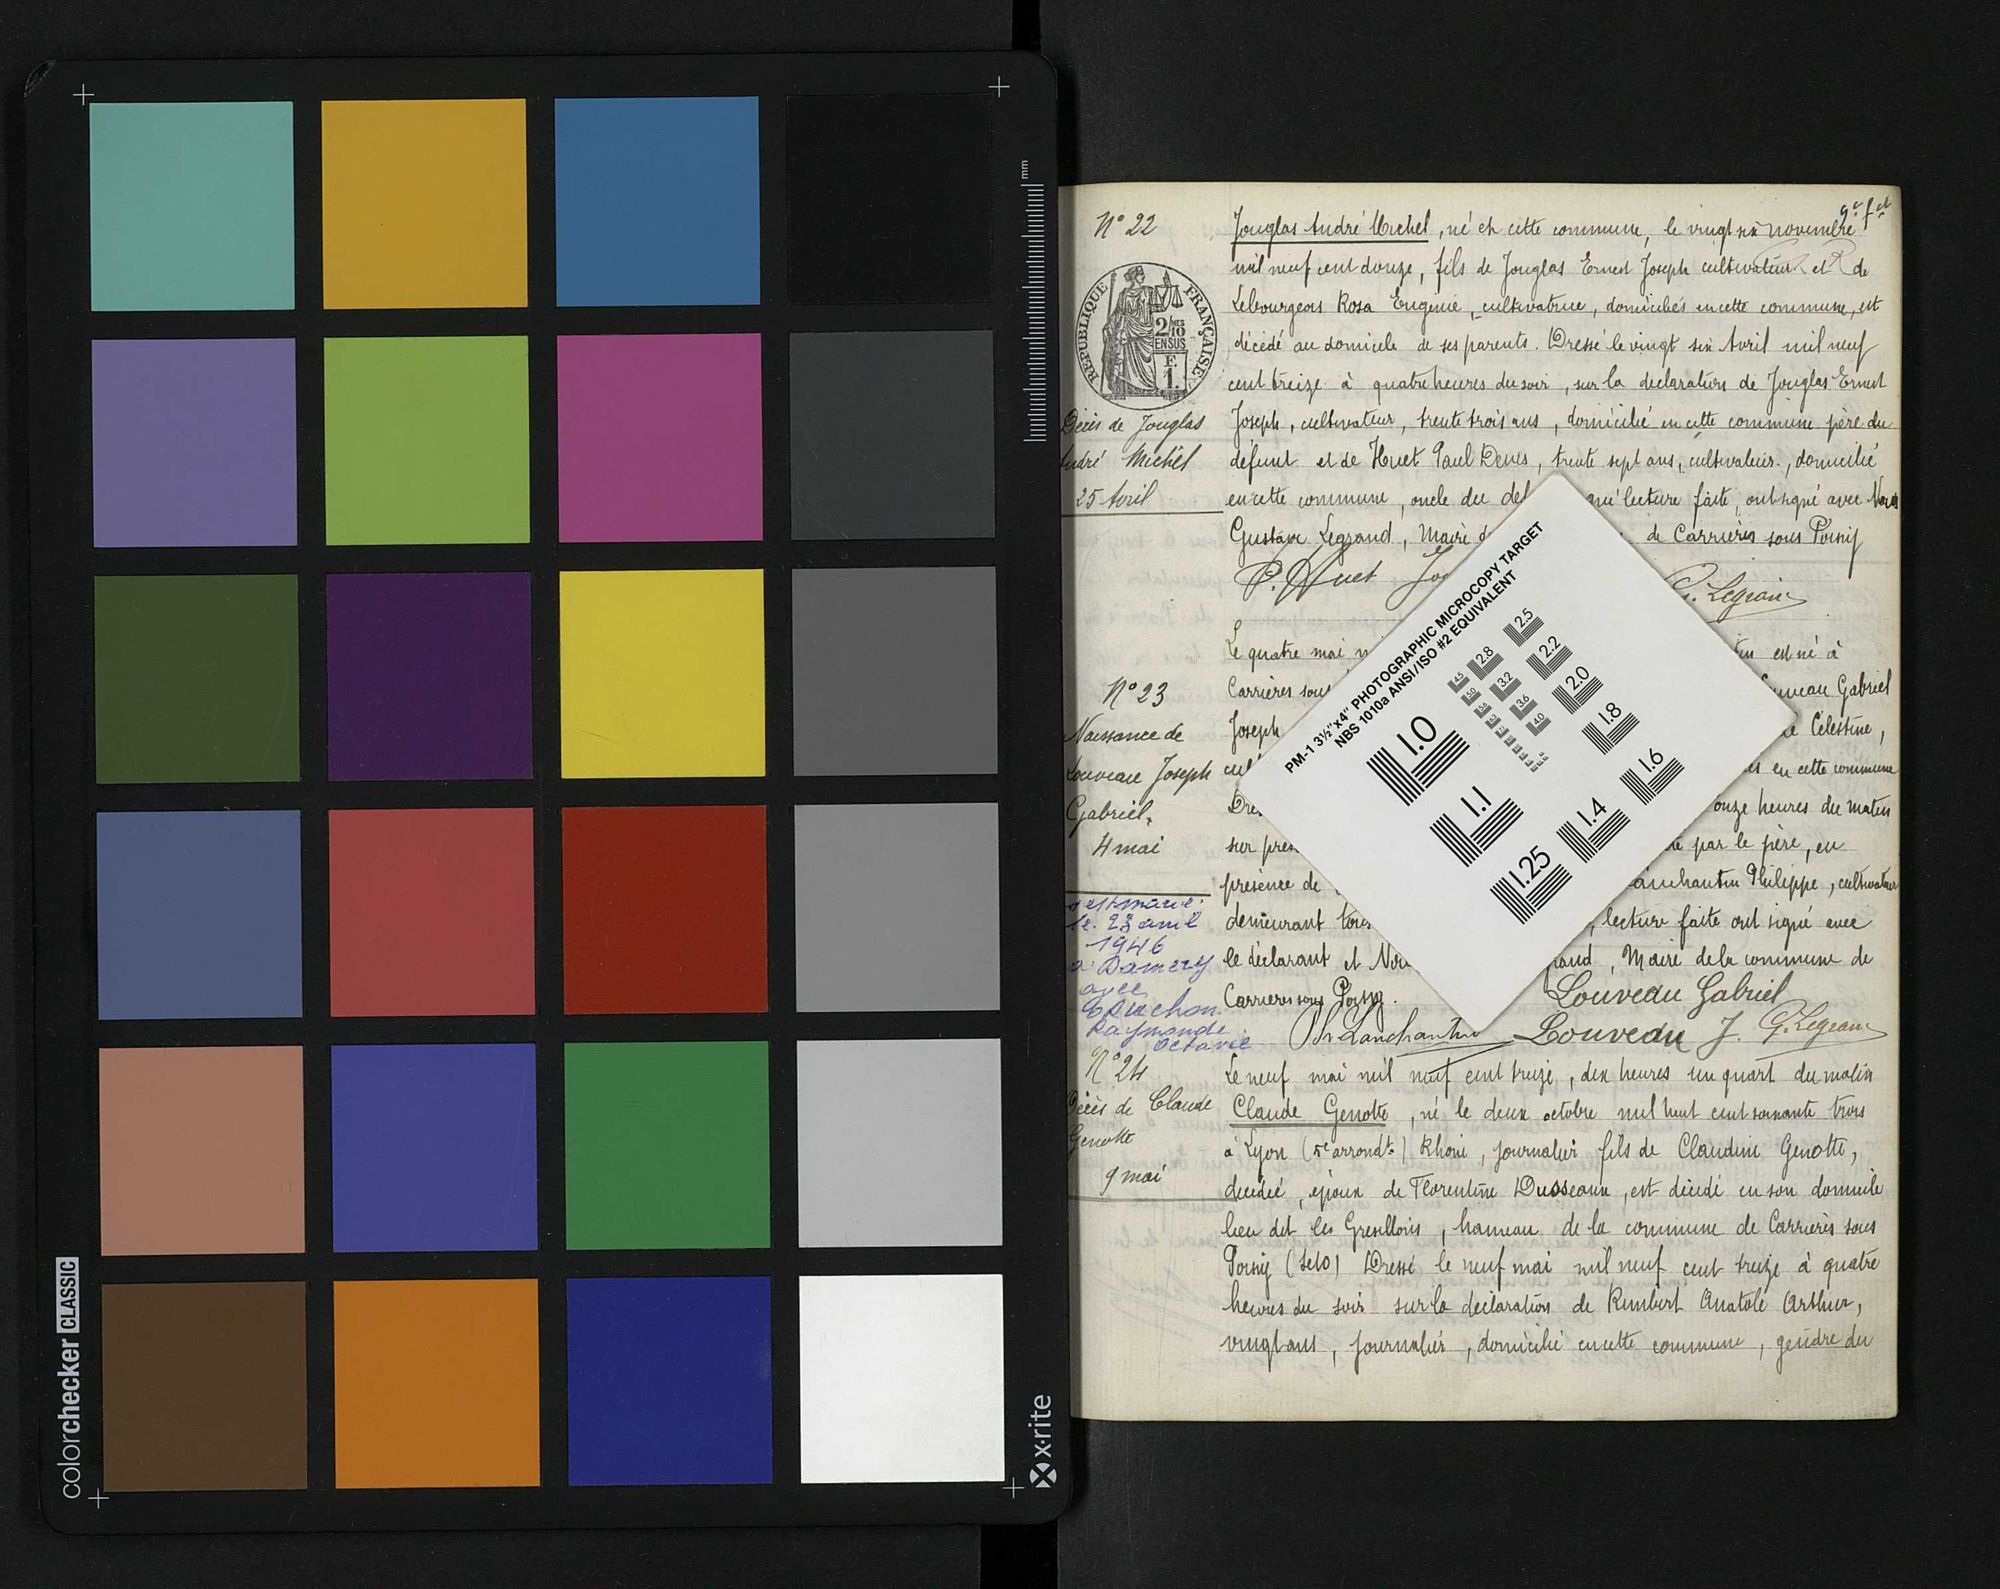 mm
colorchecker CLASSIC
x·rite
9e fet
N° 22
RÉPUBLIQUE FRANÇAISE
2/10
EN SUS
F.
1.
Décès de Jouglas
André Michel
25 Avril
Jouglas André Michel, né en cette commune, le vingt six novembre
mil neuf cent douze, fils de Jouglas Ernest Joseph cultivateur et de
Lebourgeois Rosa Eugénie, cultivatrice, domiciliés en cette commune, est
décédé au domicile de ses parents. Dressé le vingt six Avril mil neuf
cent treize à quatre heures du soir, sur la déclaration de Jouglas Ernest
Joseph, cultivateur, trente trois ans, domicilié en cette commune père du
défunt et de Huet Paul Denis, trente sept ans, cultivateur, domicilié
en cette commune, oncle du lecture faite, ont signé avec Nous
Gustave Legrand, Maire de Carrières sous Poissy
P. Huet G. Legrand
N° 23
Naissance de
Louveau Joseph
Gabriel.
4 mai
s'est marié
le 23 avril
1946
à Damery
avec
Raymonde
Octavie
Le quatre mai est né à
Carrières sous Louveau Gabriel
Joseph Célestine,
en cette commune
onze heures du matin
sur par le père, en
présence de Lanchantin Philippe, cultivateur
demeurant lecture faite ont signé avec
le déclarant et Maire de la commune de
Carrières sous Poissy.
Louveau Gabriel
Ph Lanchantin Louveau J. G. Legrand
PM-1 3½"x4" PHOTOGRAPHIC MICROCOPY TARGET
NBS 1010a ANSI/ISO #2 EQUIVALENT
1.0
1.1
1.25
1.4
1.6
1.8
2.0
2.2
2.5
2.8
3.2
3.6
4.0
4.5
5.0
5.6
N° 24
Décès de Claude
Genotte
9 mai
Le neuf mai mil neuf cent treize, dix heures un quart du matin
Claude Genotte, né le deux octobre mil huit cent soixante trois
à Lyon (5e arrondt.) Rhône, journalier fils de Claudine Genotte,
décédée, époux de Florentine Dusseaux, est décédé en son domicile
lieu dit les Grésillons, hameau de la commune de Carrières sous
Poissy (S et O) Dressé le neuf mai mil neuf cent treize à quatre
heures du soir sur la déclaration de Rimbert Anatole Arthur,
vingt ans, journalier, domicilié en cette commune, gendre du